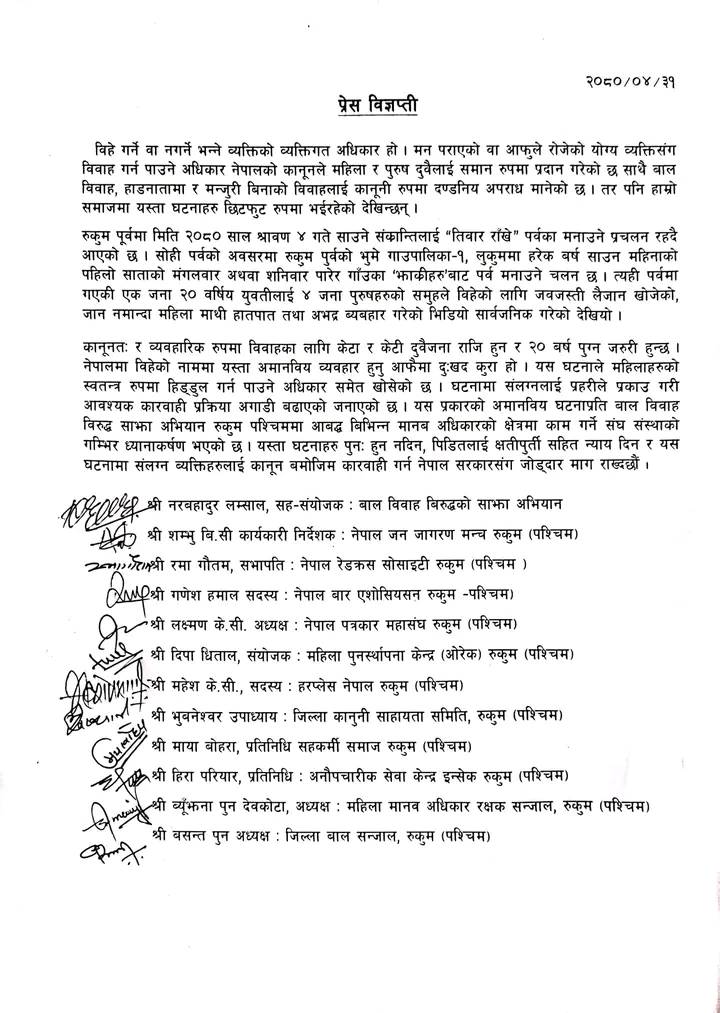 २०८०/०४/३१
प्रेस विज्ञप्ती
विहे गर्ने वा नगर्ने भन्ने व्यक्तिको व्यक्तिगत अधिकार हो । मन पराएको वा आफुले रोजेको योग्य व्यक्तिसंग
विवाह गर्न पाउने अधिकार नेपालको कानूनले महिला र पुरुष दुवैलाई समान रुपमा प्रदान गरेको छ साथै बाल
विवाह, हाडनातामा र मन्जुरी बिनाको विवाहलाई कानूनी रुपमा दण्डनिय अपराध मानेको छ । तर पनि हाम्रो
समाजमा यस्ता घटनाहरु छिटफुट रुपमा भईरहेको देखिन्छन् ।
रुकुम पूर्वमा मिति २०८० साल श्रावण ४ गते साउने संकान्तिलाई “तिवार राँखे” पर्वका मनाउने प्रचलन रहदै
आएको छ । सोही पर्वको अवसरमा रुकुम पुर्वको भुमे गाउपालिका-१, लुकुममा हरेक बर्ष साउन महिनाको
पहिलो साताको मंगलवार अथवा शनिवार पारेर गाउँका ‘झाकीहरु’बाट पर्व मनाउने चलन छ । त्यही पर्वमा
गएकी एक जना २० वर्षिय युवतीलाई ४ जना पुरुषहरुको समुहले विहेको लागि जवजस्ती लैजान खोजेको,
जान नमान्दा महिला माथी हातपात तथा अभद्र ब्यबहार गरेको भिडियो सार्वजनिक गरेको देखियो ।
कानूनतः र व्यवहारिक रुपमा विवाहका लागि केटा र केटी दुवैजना राजि हुन र २० बर्ष पुग्न जरुरी हुन्छ ।
नेपालमा विहेको नाममा यस्ता अमानविय व्यवहार हुनु आफैमा दुःखद कुरा हो । यस घटनाले महिलाहरुको
स्वतन्त्र रुपमा हिड्डुल गर्न पाउने अधिकार समेत खोसेको छ । घटनामा संलग्नलाई प्रहरीले प्रकाउ गरी
आवश्यक कारवाही प्रक्रिया अगाडी बढाएको जनाएको छ । यस प्रकारको अमानविय घटनाप्रति बाल विवाह
विरुद्ध साझा अभियान रुकुम पश्चिममा आबद्ध बिभिन्न मानब अधिकारको क्षेत्रमा काम गर्ने संघ संस्थाको
गम्भिर ध्यानाकर्षण भएको छ । यस्ता घटनाहरु पुनः हुन नदिन, पिडितलाई क्षतीपुर्ती सहित न्याय दिन र यस
घटनामा संलग्न व्यक्तिहरुलाई कानून बमोजिम कारवाही गर्न नेपाल सरकारसंग जोड्दार माग राख्दछौं ।
श्री नरबहादुर लम्साल, सह-संयोजक : बाल विवाह बिरुद्धको साझा अभियान
श्री शम्भु बि.सी कार्यकारी निर्देशक : नेपाल जन जागरण मन्च रुकुम (पश्चिम)
श्री रमा गौतम, सभापति : नेपाल रेडक्रस सोसाइटी रुकुम (पश्चिम )
श्री गणेश हमाल सदस्य : नेपाल बार एशोसियसन रुकुम -पश्चिम)
श्री लक्ष्मण के.सी. अध्यक्ष : नेपाल पत्रकार महासंघ रुकुम (पश्चिम)
श्री दिपा धिताल, संयोजक : महिला पुनर्स्थापना केन्द्र (ओरेक) रुकुम (पश्चिम)
श्री महेश के.सी., सदस्य : हरप्लेस नेपाल रुकुम (पश्चिम)
श्री भुबनेश्वर उपाध्याय : जिल्ला कानुनी सहायता समिति, रुकुम (पश्चिम)
श्री माया बोहरा, प्रतिनिधि सहकर्मी समाज रुकुम (पश्चिम)
श्री हिरा परियार, प्रतिनिधि : अनौपचारीक सेवा केन्द्र इन्सेक रुकुम (पश्चिम)
श्री ब्यूँझना पुन देवकोटा, अध्यक्ष : महिला मानव अधिकार रक्षक सन्जाल, रुकुम (पश्चिम)
श्री बसन्त पुन अध्यक्ष : जिल्ला बाल सन्जाल, रुकुम (पश्चिम)